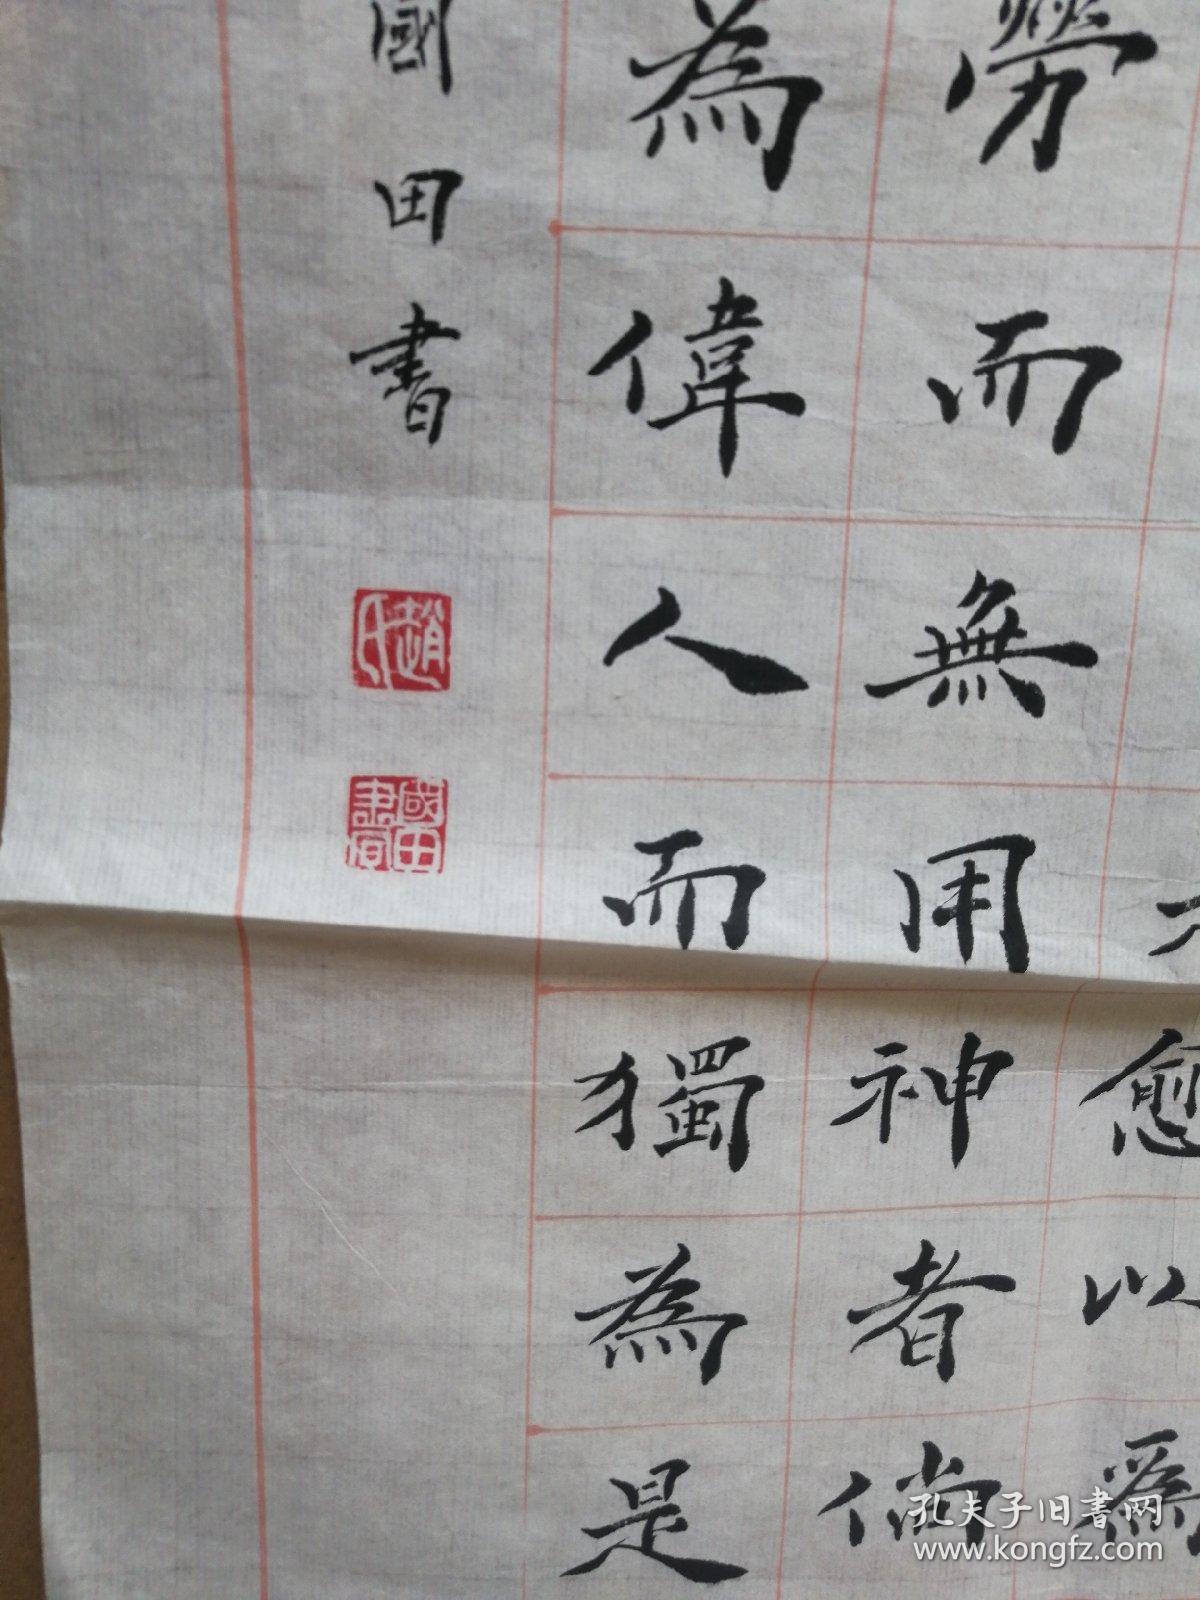 愈以爲
勞而無用神者倘
為偉人而獨為是
國田書
趙氏
國田書
孔夫子旧書网
www.kongfz.com